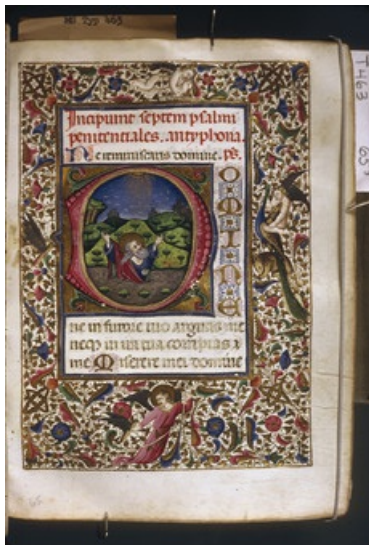 MS Typ 463
Incipiunt septem psalmi
penitentiales. antyphona
Ne reminiscaris domine. ps.
D
OMINE
ne in furore tuo arguas me
neq in ira tua corripias
me Miserere mei domine
T 463
65